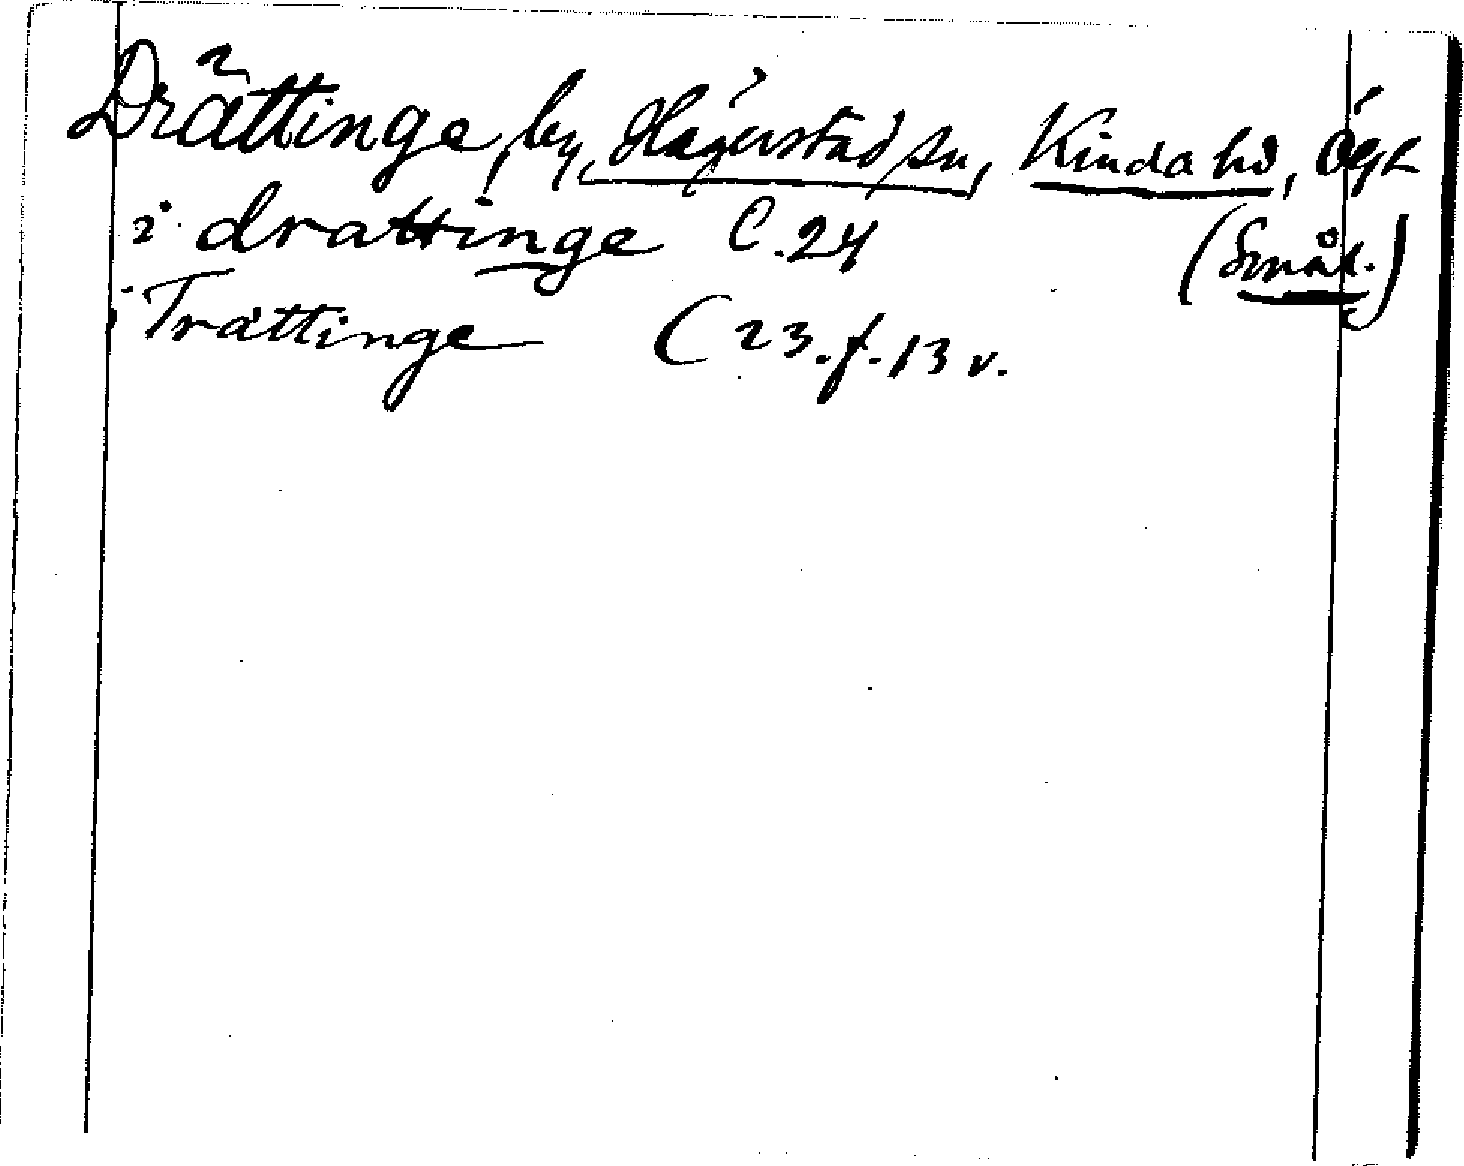 Drättinge, by, Hägerstad sn, Kinda hd, Ögl
i drattinge C.24 (Smål.)
i Trättinge C 23. f. 13 v.